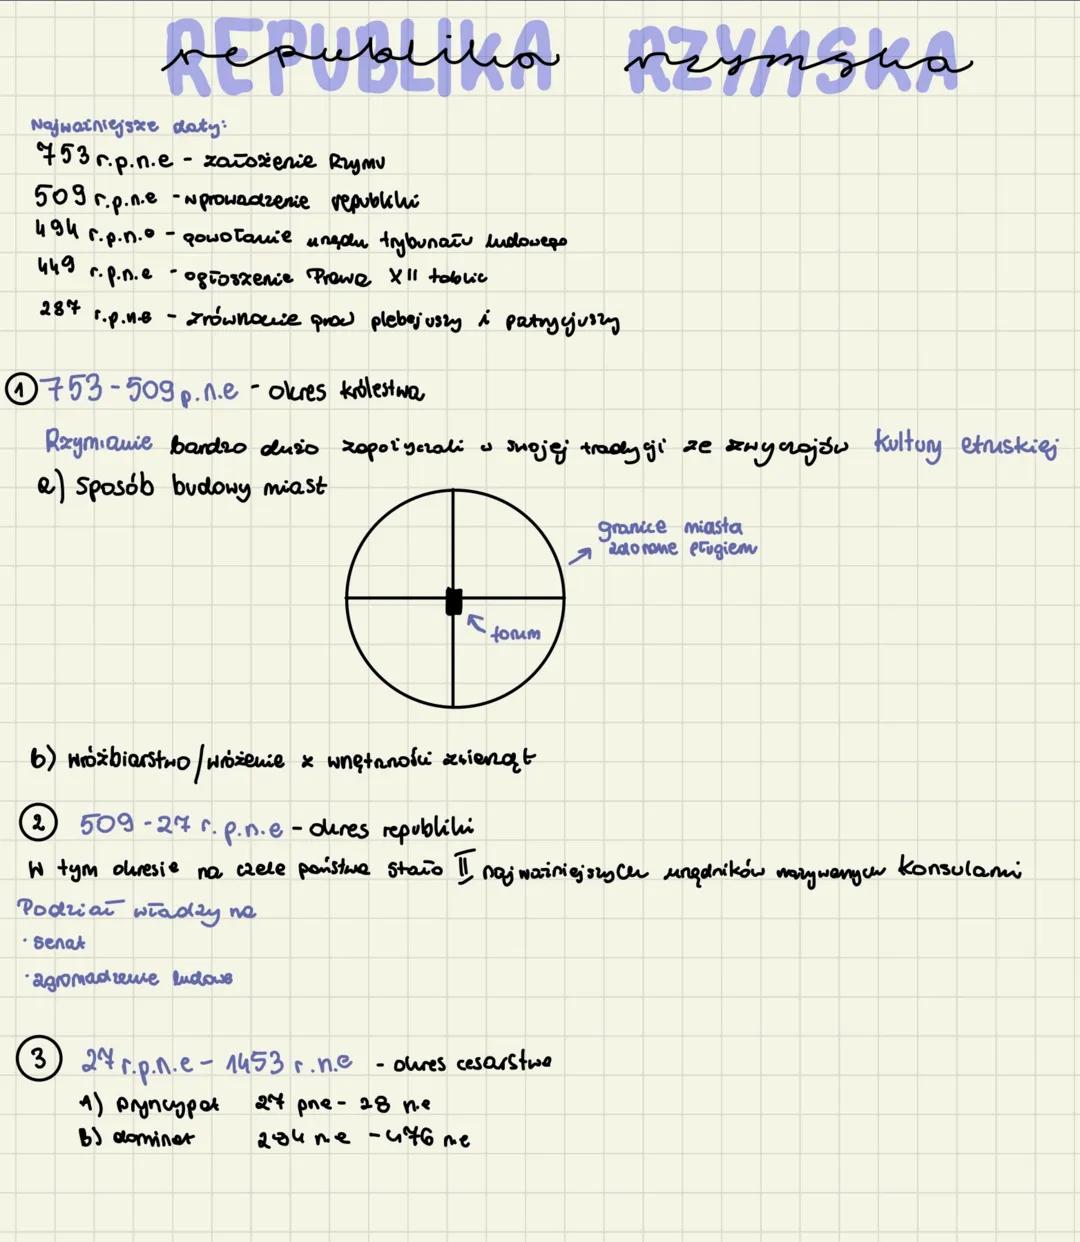 REPUBLIKA RZYMSKA
republika rzymska
Najważniejsze daty:
753 r.p.n.e - założenie Rzymu
509 r.p.n.e - wprowadzenie republiki
494 r.p.n.e - powołanie urzędu trybunału ludowego
449 r.p.n.e - ogłoszenie Prawa XII tablic
287 r.p.n.e - zrównanie praw plebejuszy i patrycjuszy
1 753-509 p.n.e - okres królestwa
Rzymianie bardzo dużo zapożyczali w swojej tradycji ze zwyczajów kultury etruskiej
a) Sposób budowy miast
granice miasta
zaorane pługiem
forum
b) wróżbiarstwo/wróżenie z wnętrzności zwierząt
2 509-27 r.p.n.e - okres republiki
W tym okresie na czele państwa stało II najważniejszych urzędników nazywanych Konsulami
Podział władzy na
· senat
· zgromadzenie ludowe
3 27 r.p.n.e - 1453 r.n.e - okres cesarstwa
A) pryncypat 27 pne - 28 n.e
B) dominat 284 n.e - 476 n.e